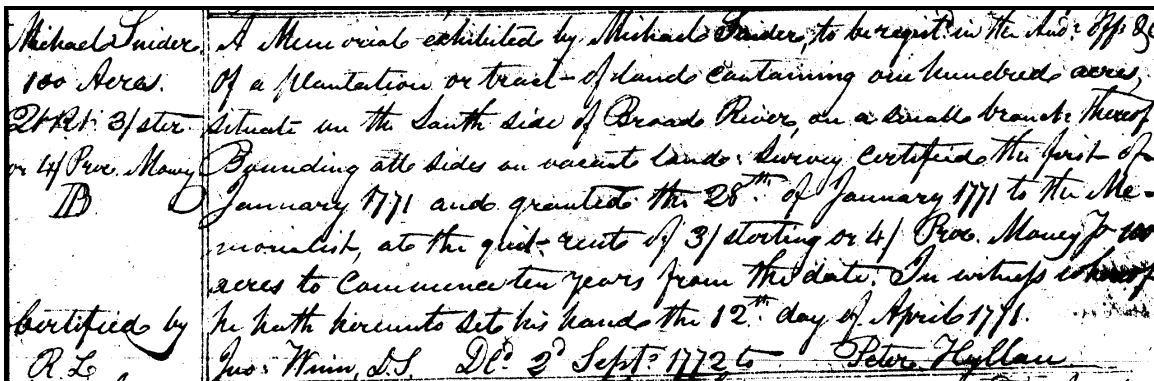 Michael Snider, A Memorial exhibited by Michael Snider, to be regist.d in the Aud.r Off. &c
100 Acres. of a plantation or tract of land containing one hundred acres,
Qt. Rt. 3/ ster situate on the South side of Broad River, on a small branch thereof
or 4/ Proc. Money Bounding all sides on vacant land: Survey certified the first of
B January 1771 and granted the 28th of January 1771 to the Me-
morialist, at the quit-rents of 3/ sterling or 4/ Proc. Money P 100
acres to commence ten years from the date. In witness whereof
Certified by he hath hereunto set his hand the 12th day of April 1771.
R. L Jno: Winn, D.S. Dld 2d Sept.r 1772 to Peter Hyllau